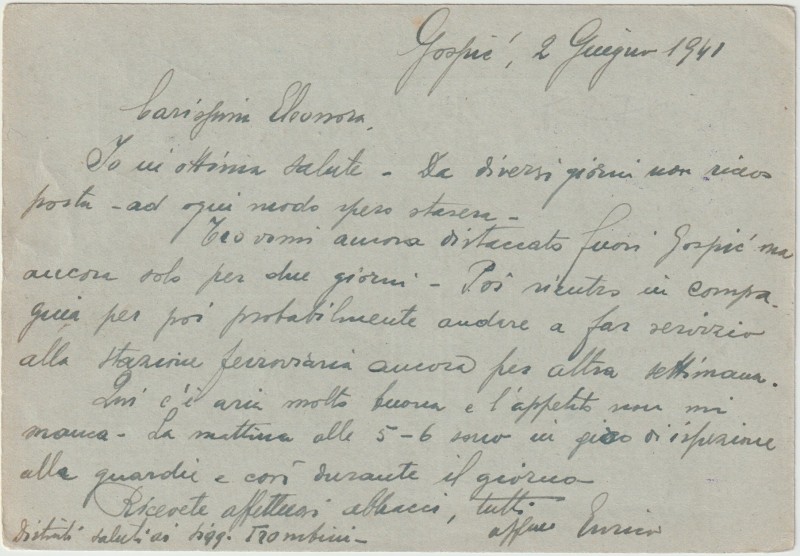 Gospić, 2 Giugno 1941
Carissima Eleonora,
Io in ottima salute - Da diversi giorni non ricevo
posta - ad ogni modo spero stasera -
Trovomi ancora distaccato fuori Gospić ma
ancora solo per due giorni - Poi rientro in compa-
gnia per poi probabilmente andare a far servizio
alla stazione ferroviaria ancora per altra settimana.
Qui c'è aria molto buona e l'appetito non mi
manca - La mattina alle 5-6 sono in giro di ispezione
alle guardie e così durante il giorno
Ricevete affettuosi abbracci, tutti
aff.mo Enrico
Distinti saluti ai Sigg. Trombini -